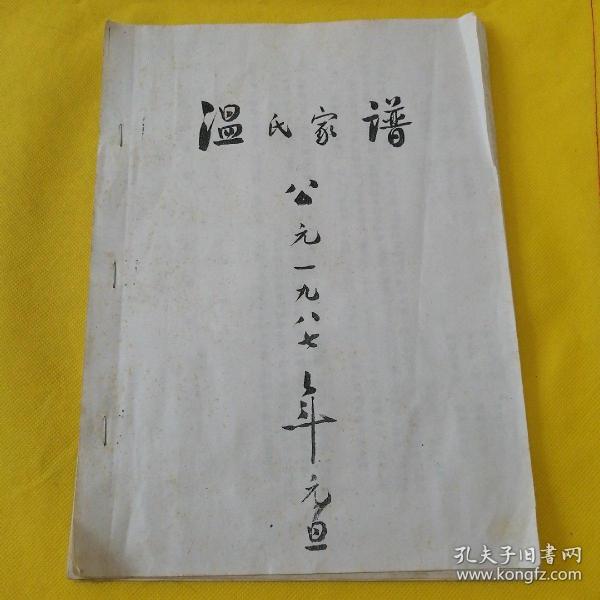 温氏家谱
公元一九八七年元旦
孔夫子旧書网
www.kongfz.com